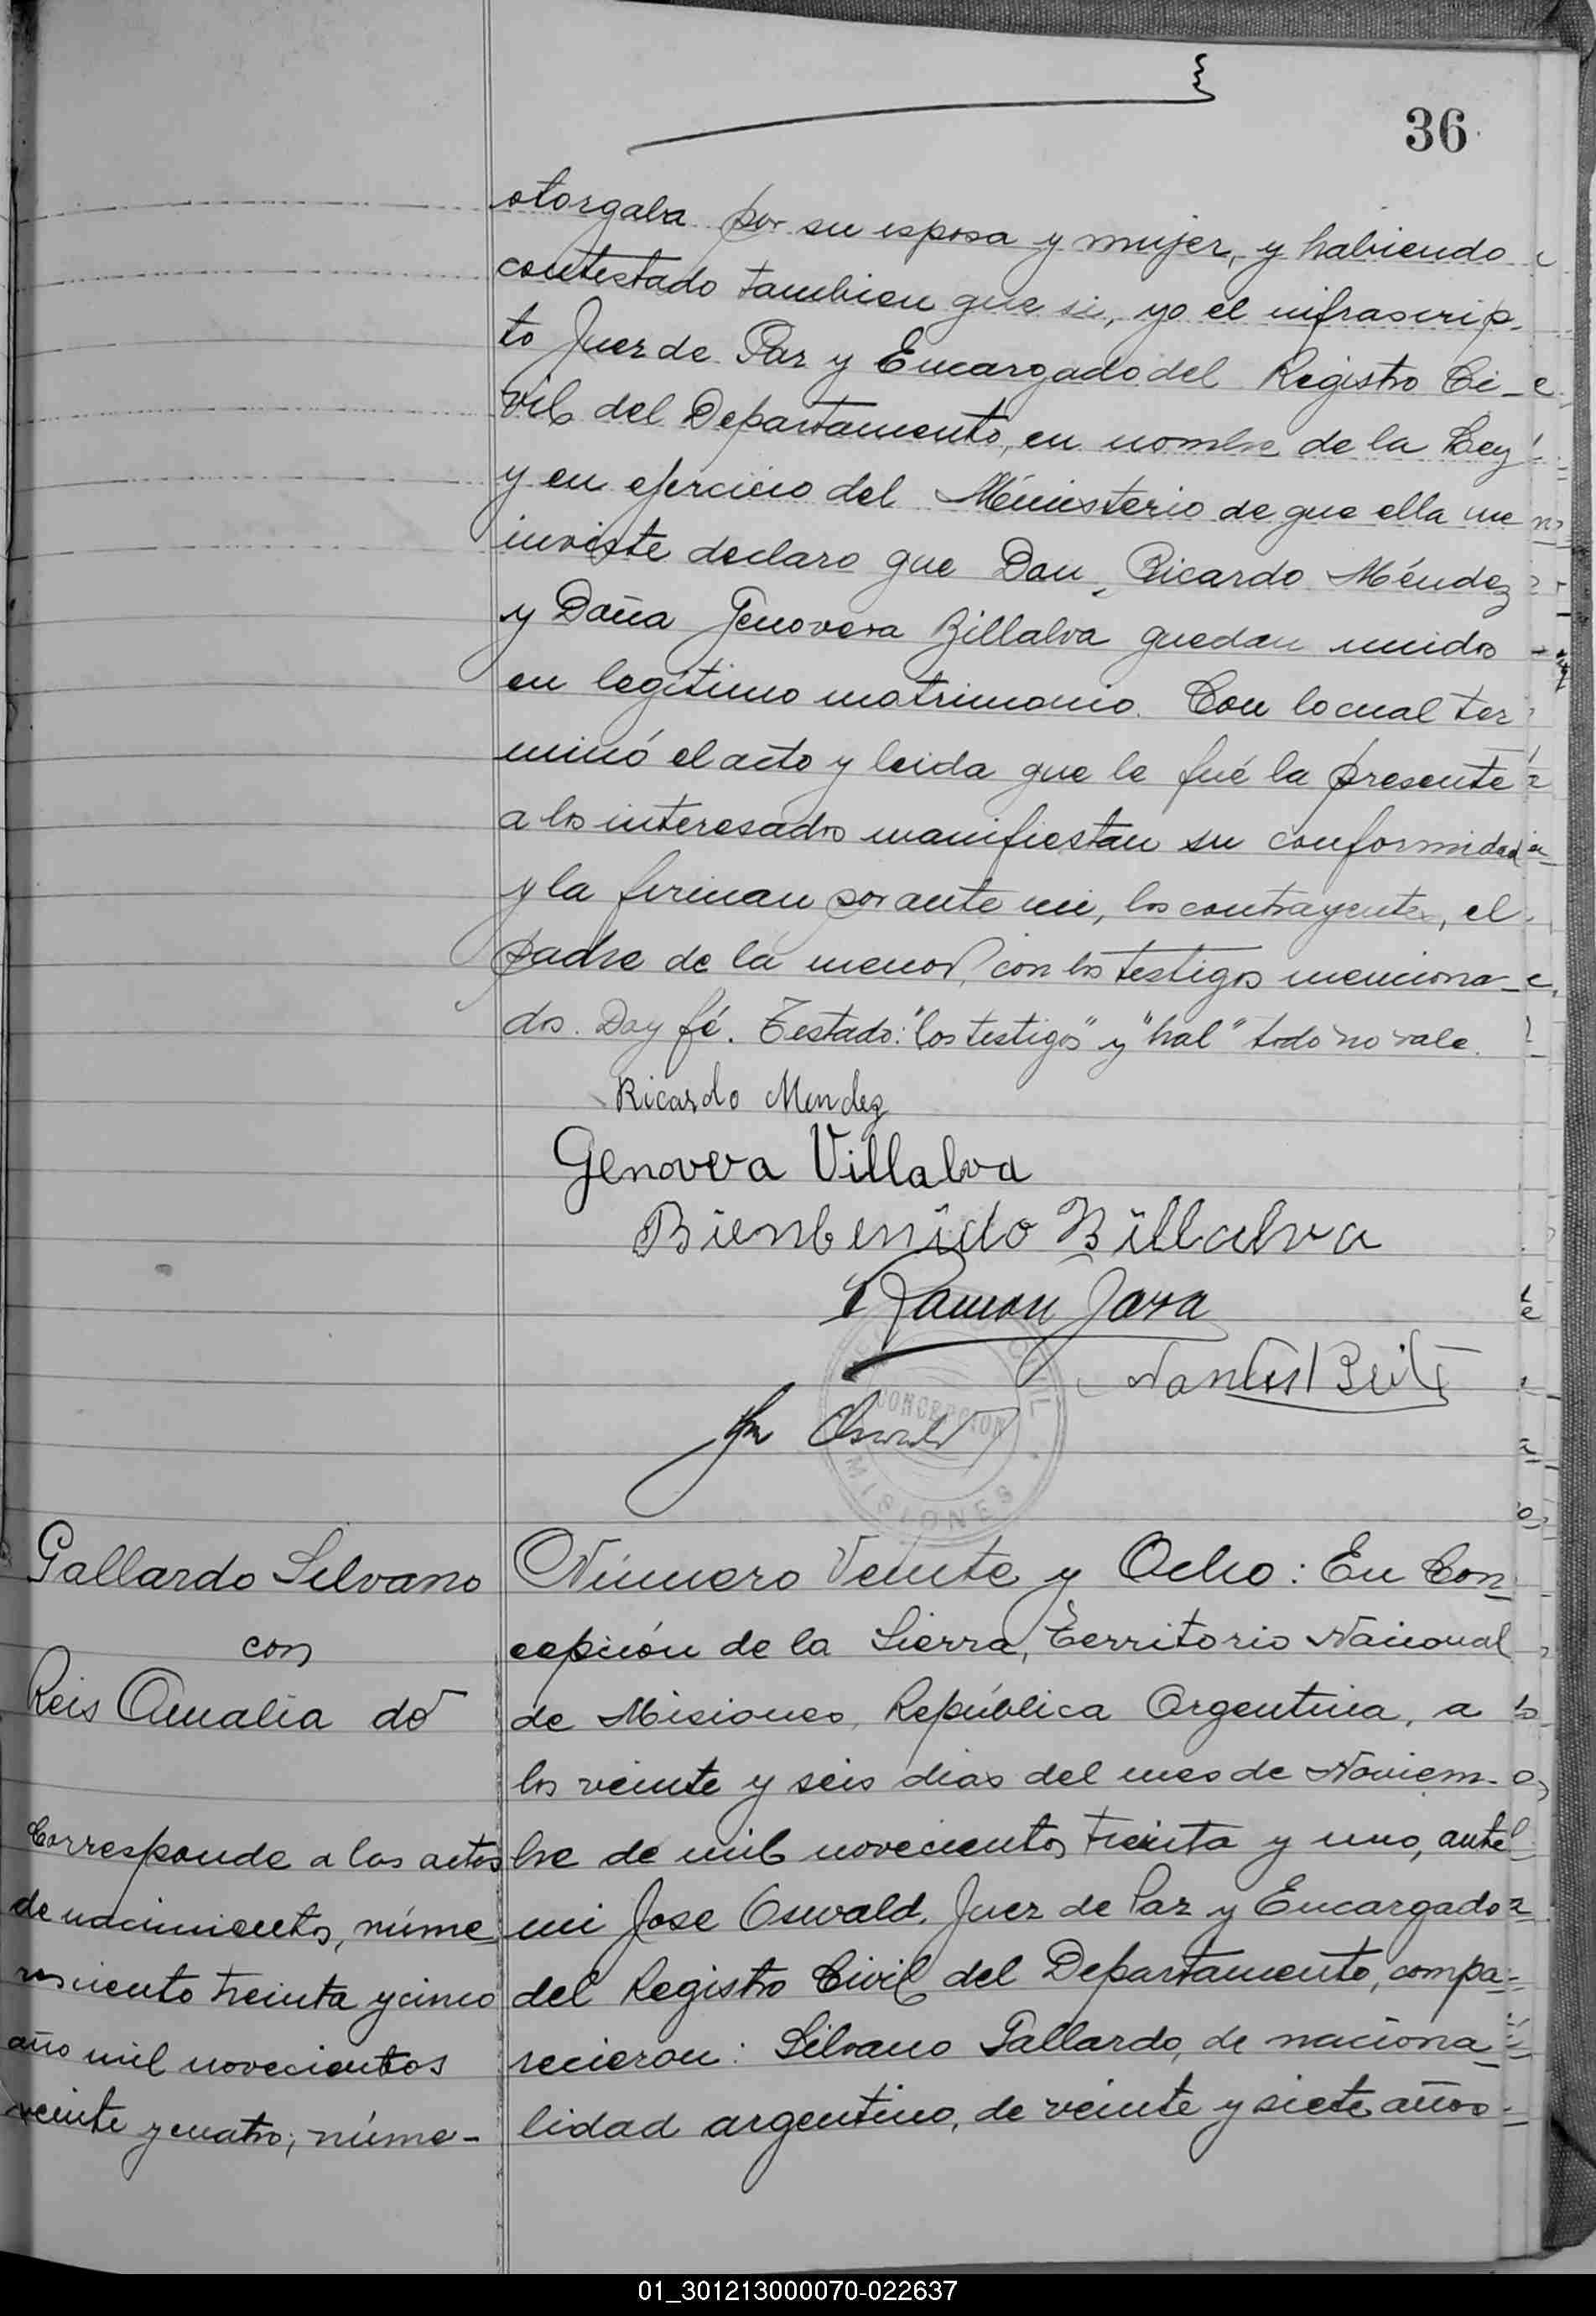 36
otorgaba por su esposa y mujer, y habiendo
contestado tambien que si, yo el infrascrip-
to Juez de Paz y Encargado del Registro Ci-
vil del Departamento, en nombre de la Ley
y en ejercicio del Ministerio de que ella me
inviste declaro que Don Ricardo Méndez
y Doña Genoveva Billalva quedan unidos
en legítimo matrimonio. Con lo cual ter
minó el acto y leida que le fué la presente
a los interesados manifiestan su conformidad
y la firman por ante mi, los contrayentes, el
padre de la menor, con los testigos menciona-
dos. Doy fé. Testado: "los testigos" y "hal" todo no vale.
Ricardo Mendez
Genoveva Villalva
Bienbenido Billalva
Ramon Jara
CIVIL
CONCEPCION
Oswald
MISIONES
Gallardo Silvano
con
Reis Amalia do
Corresponde a las actas
de nacimientos, núme
ros ciento treinta y cinco
año mil novecientos
veinte y cuatro; núme-
Número Veinte y Ocho: En Con
cepción de la Sierra, Territorio Nacional
de Misiones, República Argentina, a
los veinte y seis dias del mes de Noviem-
bre de mil novecientos treinta y uno, ante
mi Jose Oswald, Juez de Paz y Encargado
del Registro Civil del Departamento, compa-
recieron: Silvano Gallardo, de naciona
lidad argentino, de veinte y siete años
01_301213000070-022637